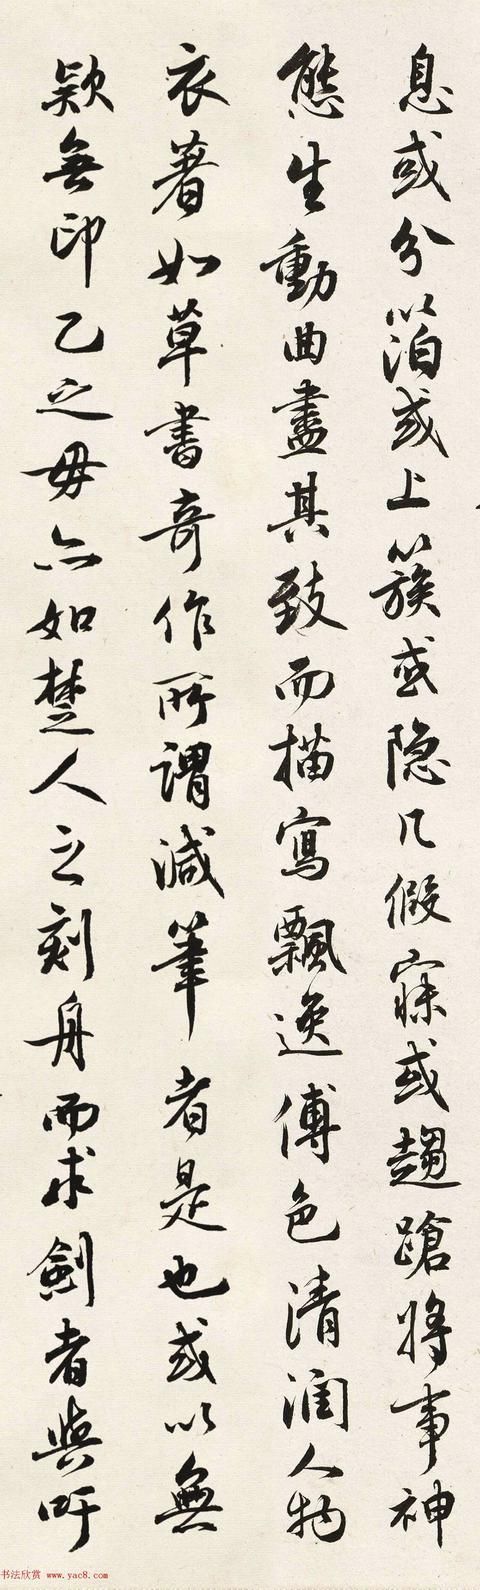 息或分箔或上簇或隐几假寐或趨蹌將事神
態生動曲盡其致而描寫飄逸傅色清润人物
衣著如草書奇作所謂減筆者是也或以無
款無印乙之毋亦如楚人之刻舟而求劍者與吁
书法欣赏 www.yac8.com